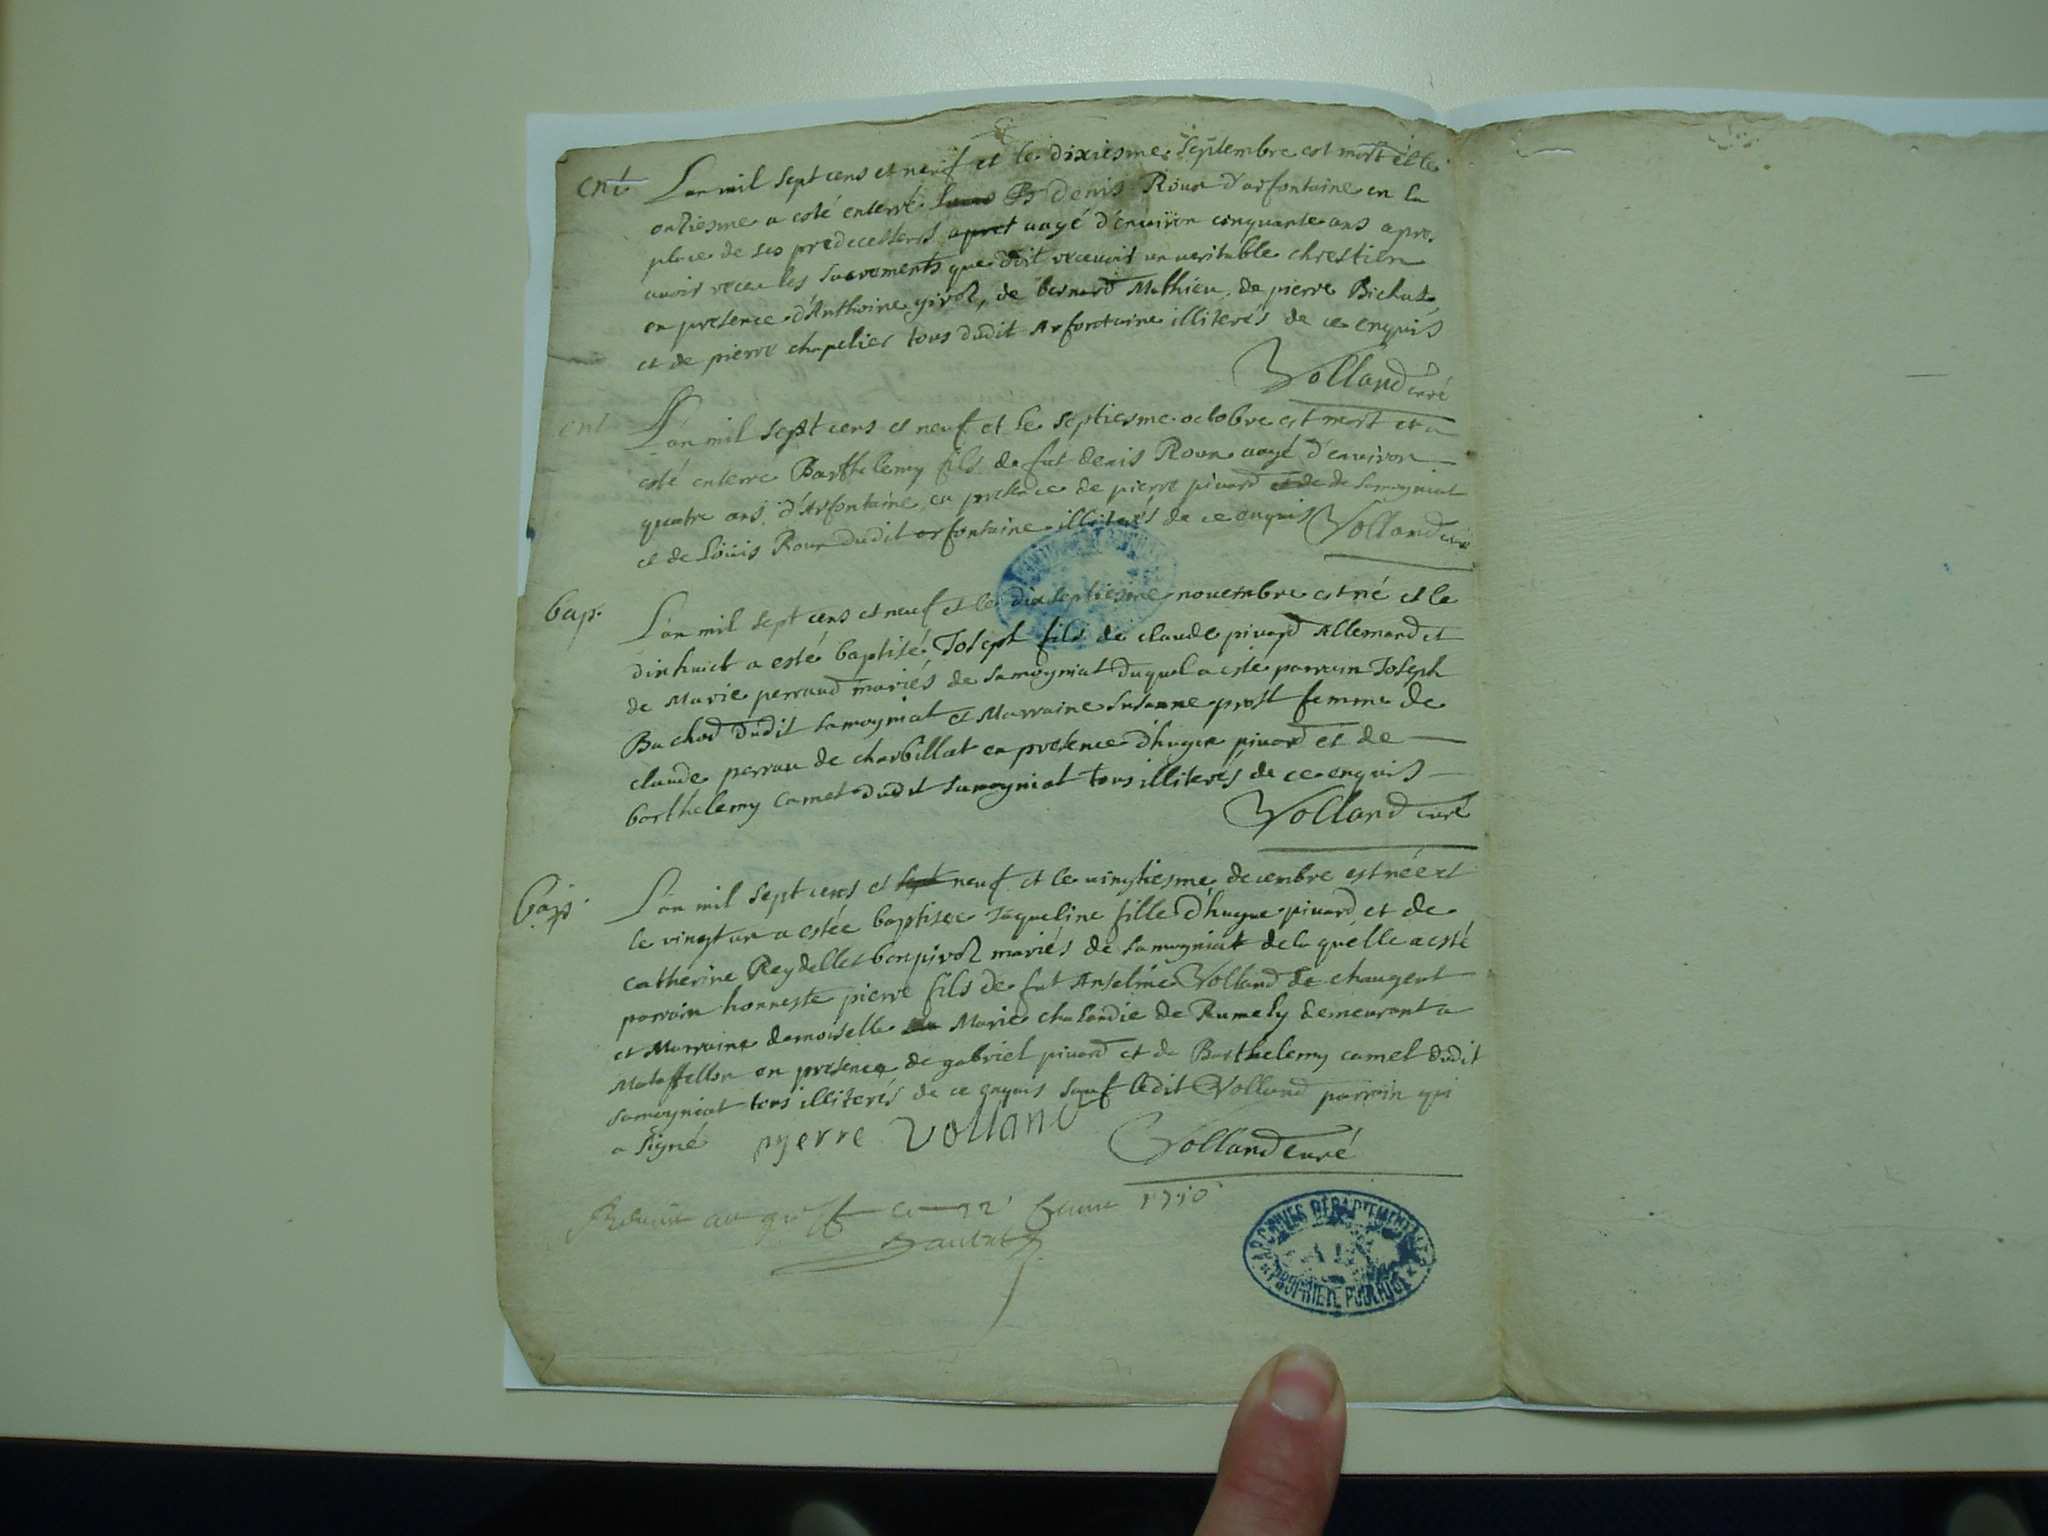 ent L'an mil sept cens et neuf et le dixiesme Septembre est mort et le
onziesme a esté enterré Denis Roux d'arfontaine en la
place de ses predecesseurs apret aagé d'environ cinquante ans apres
avoir receu les sacrements que doit recevoir un veritable chrestien
en presence d'Anthoine girod, de bernard Mathieu, de pierre Bichat
et de pierre chapelier tous dudit Arfontaine illiterés de ce enquis
Volland curé
ent L'an mil sept cens et neuf et le septiesme octobre est mort et a
esté enterré Barthelemy fils de fut denis Roux aagé d'environ
quatre ans d'Arfontaine en presence de pierre pivard et de de Samogniat
et de Loüis Roux dudit arfontaine illiterés de ce enquis Volland curé
bap. L'an mil sept cens et neuf et le dixseptiesme novembre est né et le
dixhuict a esté baptisé Joseph fils de claude pivard Allemand et
de Marie perraud mariés de Samogniat duquel a esté parrain Joseph
Buchod dudit samogniat et Marraine Susanne prost femme de
claude perrau de charbillat en presence d'hugue pivard et de
barthelemy camel dudit Samogniat tous illiterés de ce enquis
Volland curé
bap. L'an mil sept cens et sept neuf et le vingtiesme decembre est née et
le vingt un a estée baptisee Jaqueline fille d'hugue pivard et de
Catherine Reydellet bonpivod mariés de samogniat de la quelle a esté
parrain honneste pierre fils de fut Anselme Volland de chaugeat
et Marraine demoiselle Marie chalandie de Rumely demeurant a
Mataffellon en presence de gabriel pivard et de Barthelemy camel dudit
samogniat tous illiterés de ce enquis sauf ledit Volland parrain qui
a signé pyerre volland Volland curé
au greffe ce 12 1710
ARCHIVES DÉPARTEMENTALES
PROPRIÉTÉ PUBLIQUE